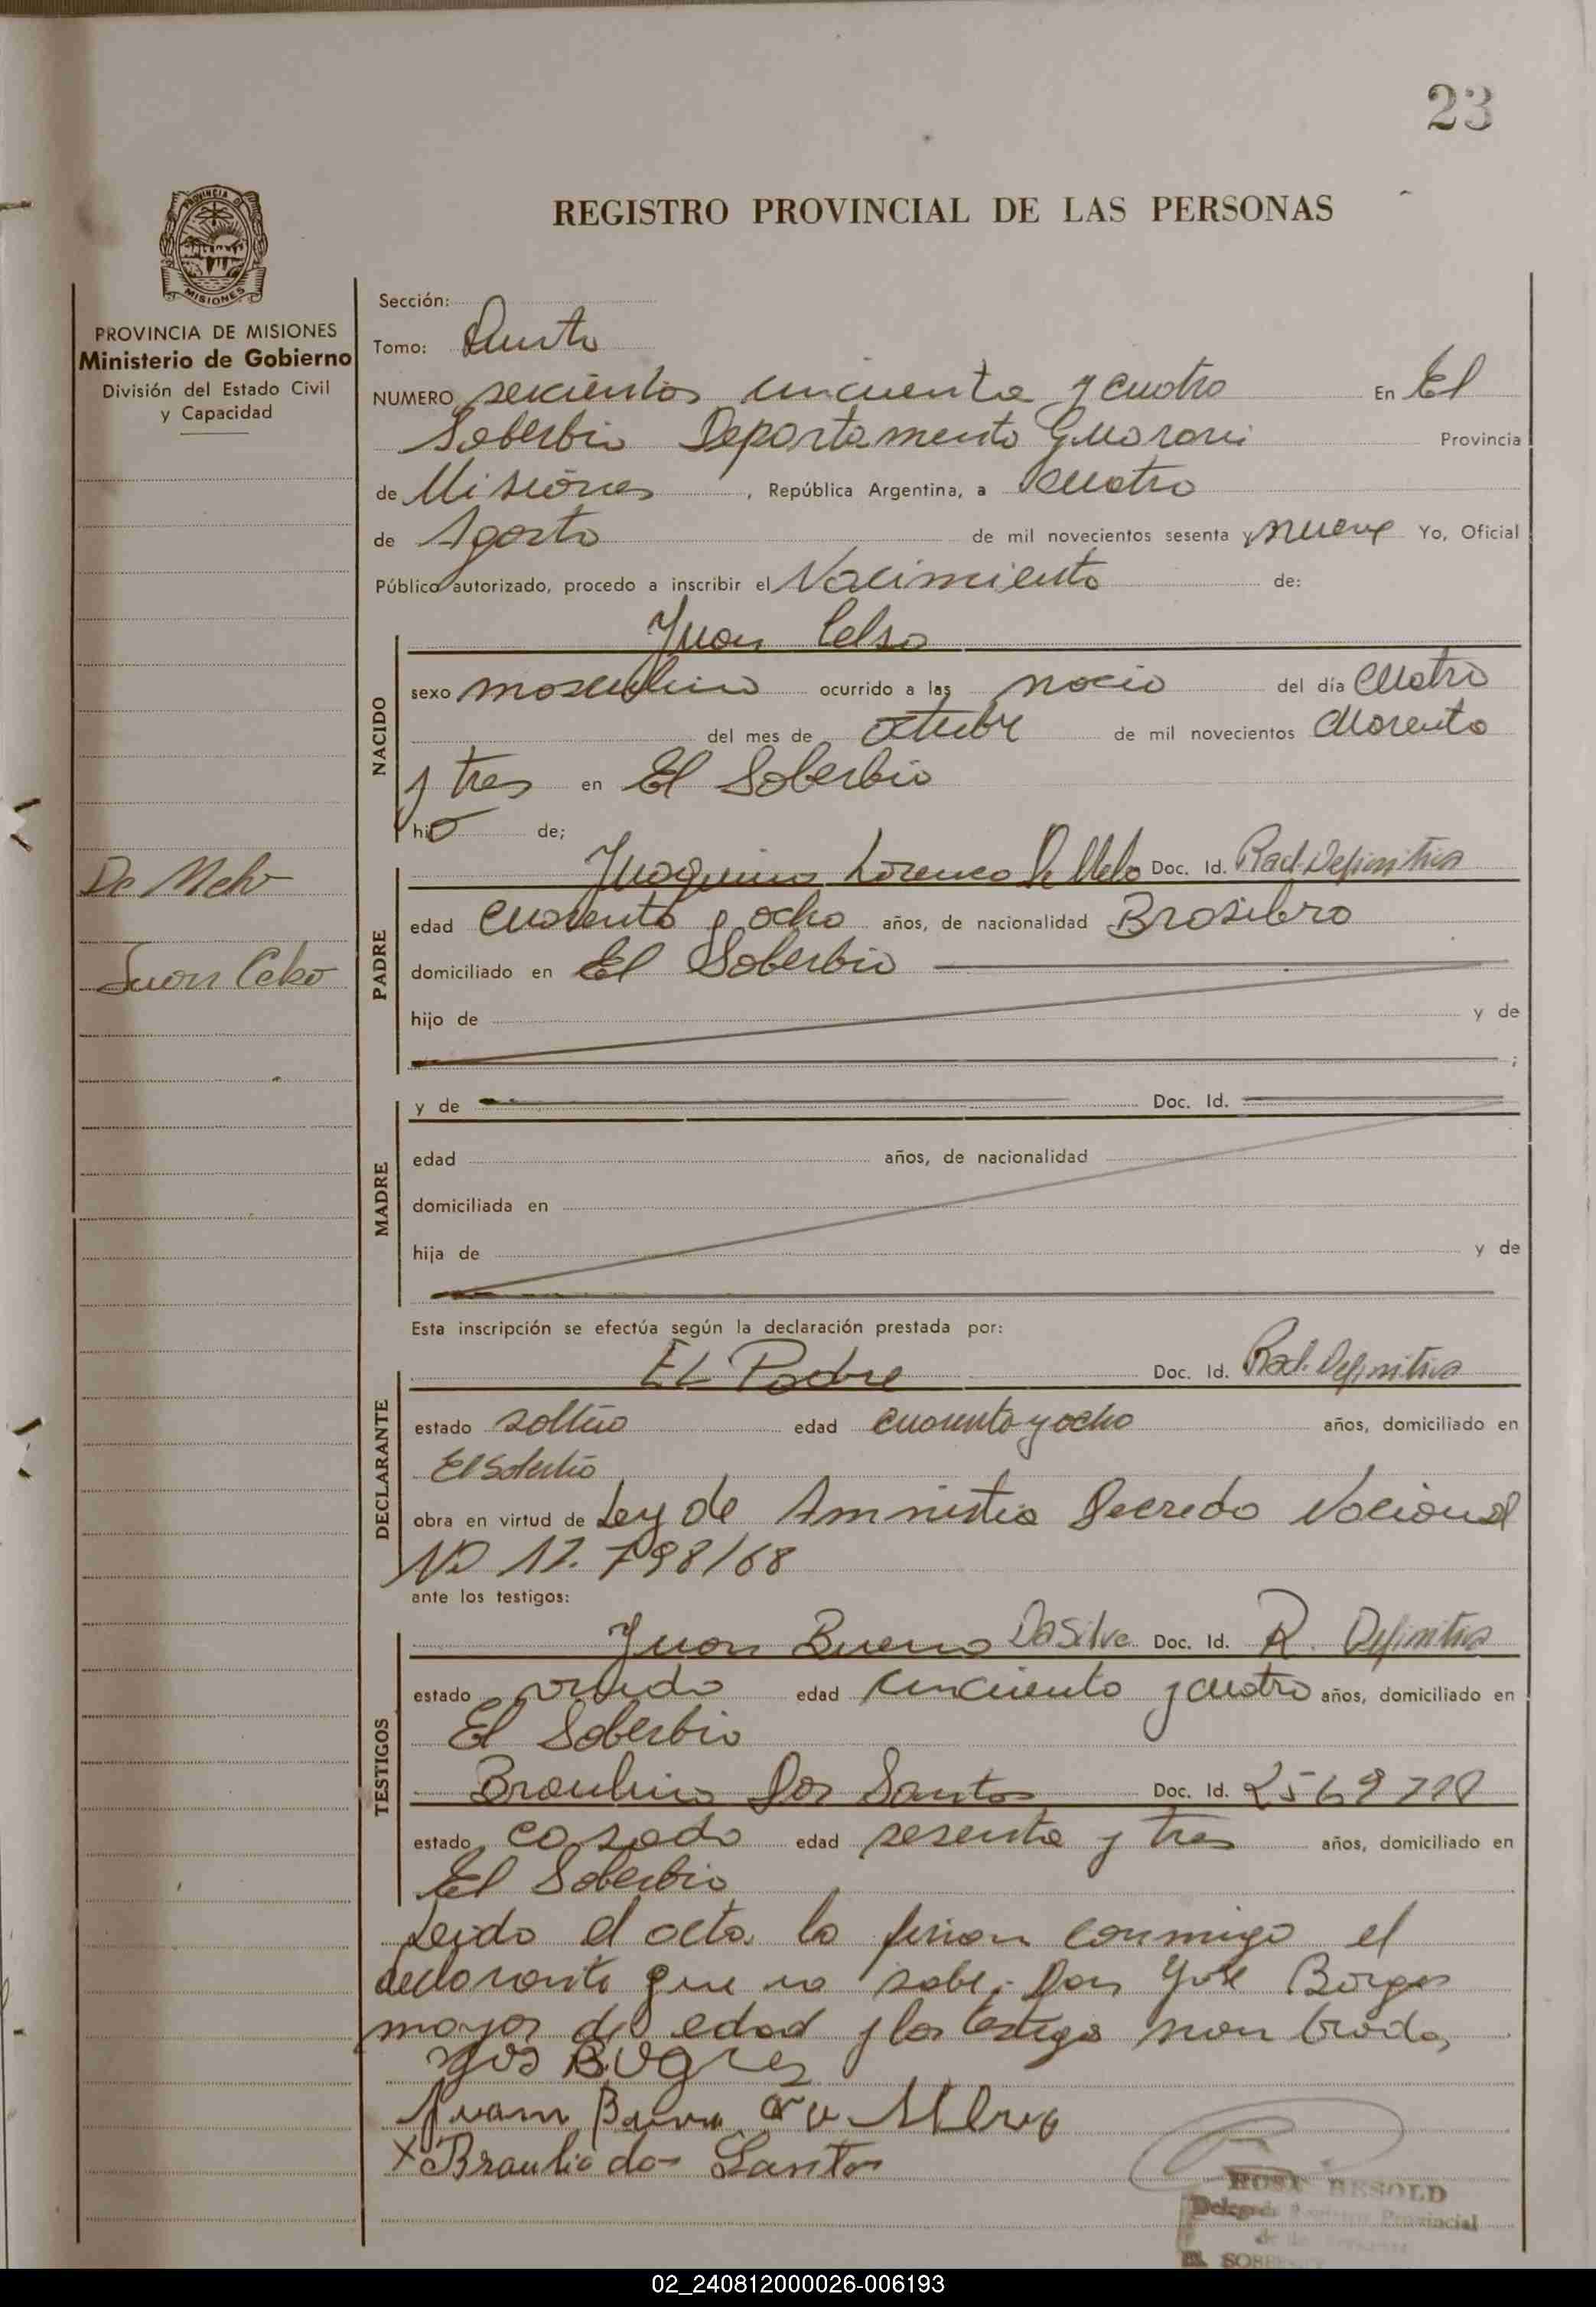 23
REGISTRO PROVINCIAL DE LAS PERSONAS
PROVINCIA DE
MISIONES
PROVINCIA DE MISIONES
Ministerio de Gobierno
División del Estado Civil
y Capacidad
De Melo
Juan Celso
Sección:
Tomo:
NUMERO seiscientos cincuenta y cuatro En El
Soberbio Departamento Guarani Provincia
de Misiones, República Argentina, a cuatro
de Agosto de mil novecientos sesenta y nueve Yo, Oficial
Público autorizado, procedo a inscribir el Nacimiento de:
Juan Celso
NACIDO
sexo masculino ocurrido a las del día cuatro
del mes de octubre de mil novecientos cuarenta
y tres en El Soberbio
hijo de;
PADRE
Lorenco De Melo Doc. Id. Rad. Definitiva
edad cuarenta y ocho años, de nacionalidad Brasilero
domiciliado en El Soberbio
hijo de y de
;
MADRE
y de Doc. Id.
edad años, de nacionalidad
domiciliada en
hija de y de
Esta inscripción se efectúa según la declaración prestada por:
DECLARANTE
EL Padre Doc. Id. Rad. Definitiva
estado soltero edad cuarenta y ocho años, domiciliado en
El Soberbio
obra en virtud de Ley de Amnistia Decredo Nacional
Nº 17.798/68
ante los testigos:
TESTIGOS
Juan Bueno Da Silva Doc. Id. R. Definitiva
estado viudo edad cincuenta y cuatro años, domiciliado en
El Soberbio
Braulino Dos Santos Doc. Id.
estado casado edad sesenta y tres años, domiciliado en
El Soberbio
Leido el acta la firman conmigo el
declarante que no sabe, Don José Borges
mayor de edad y los testigos nombrados
Juam
X Braulio dos Santos
ROSA BESOLD
Provincial
EL SOBERBIO
02_240812000026-006193